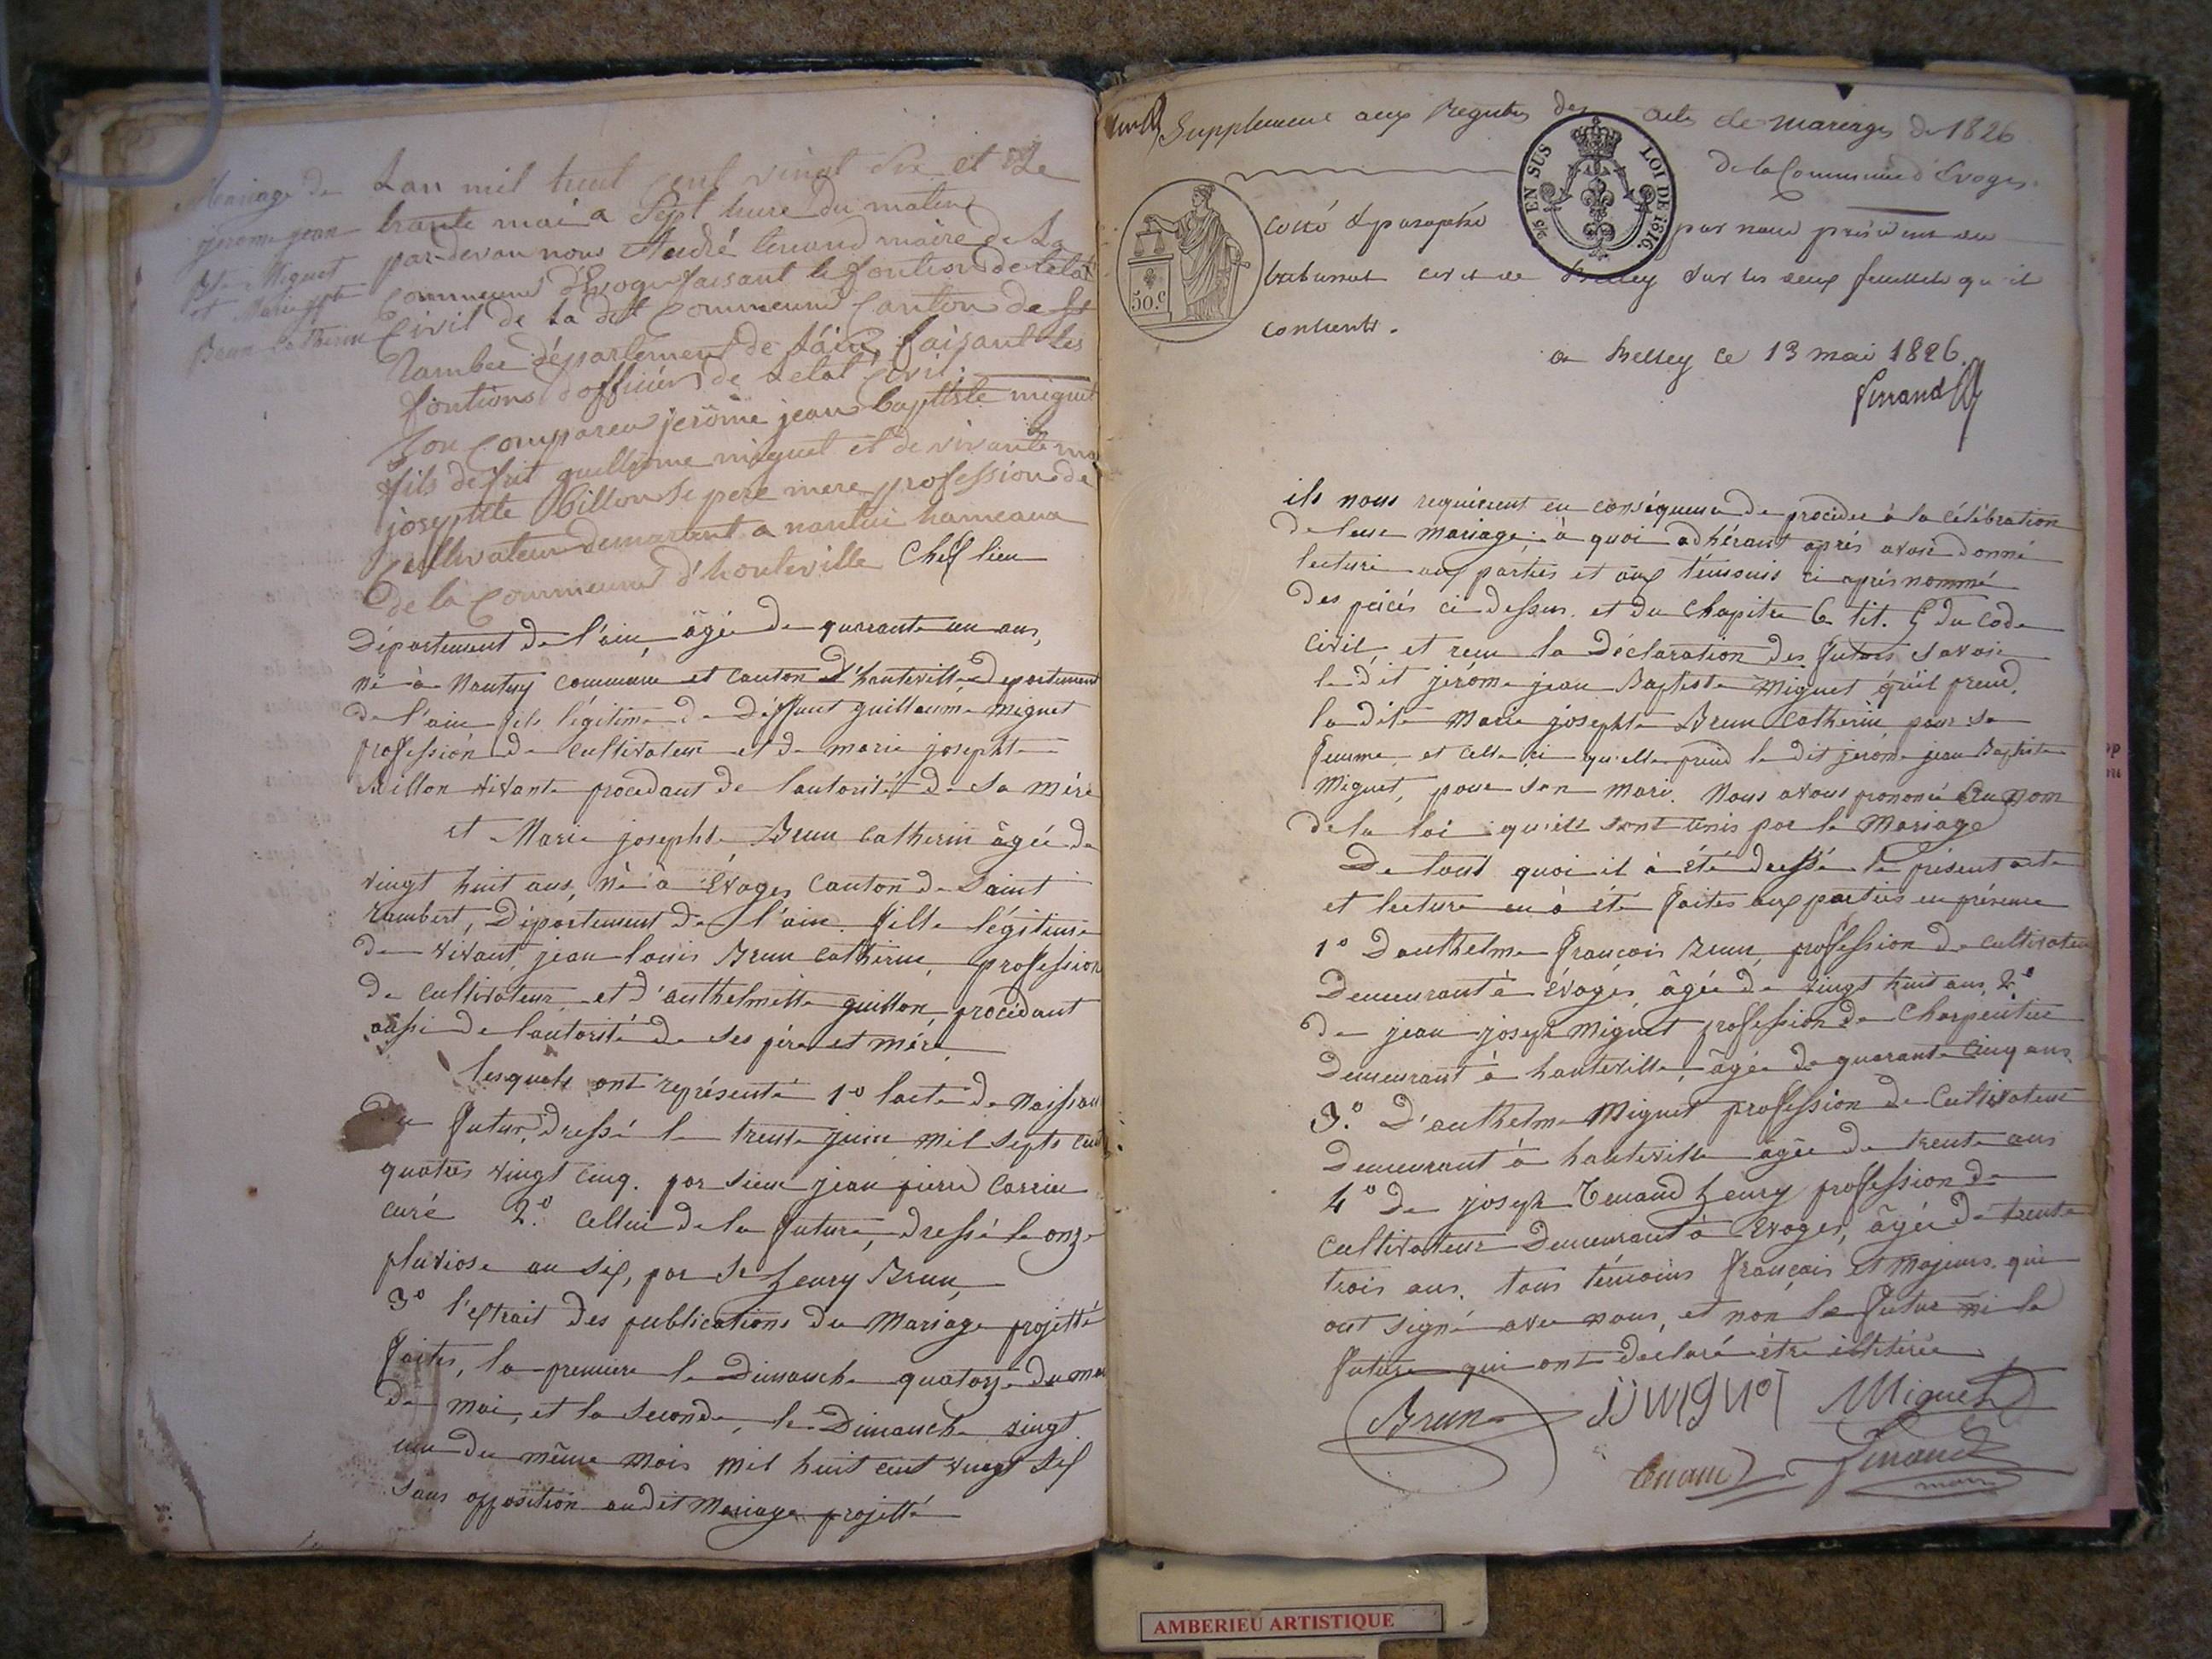 Mariage de
jerome jean
Bte Miguet
et Marie jphte
Brun Catherin
Lan mil huit cent vingt six et Le
trante mai a Sept hure du matin
par devan nous André tenand maire de La
Commeune d'Evoge faisant le fontion de letat
Civil de La dit Commeune Canton de St
Rambee département de Láin, faisant les
fontions dofficier de Letat Civil.
Son Compareu jeröme jean baptiste miguet
fils de fut guelliome miguet et de vivante ma
josephte billion Se pere mere profession de
Cultivateur demurant a nantui hameaux
de la Commeune d'hauteville Chef lieu
Département de l'ain, âgé de quarante un ans,
né à Nantuy commune et canton d'hauteville, departement
de l'ain fils légitime de Deffunt guillaume Miguet
profession de cultivateur et de marie josephte
Billon vivante procedant de l'autorité de sa mére
et Marie josephte Brun Catherin âgée de
vingt huit ans, né à Evoges Canton de Saint
rambert, Département de l'ain. fille légitime
de vivant jean louis Brun catherin, profession
de cultivateur et d'anthelmette guillon, procédant
aussi de l'autorité de ses père et mére
lesquels ont représenté 1º l'acte de Naissan
du futur, dressé le trente juin mil septs cent
quatres vingt cinq. par sieur jean pierre Carrier
curé 2º. Cellui de la future, dressé le onze
pluviose an six, par Sr henry Brun,
3º l'extrait des publications du Mariage projetté
faites, la premiere le Dimanche quatorze du mois
de mai, et la seconde, le Dimanche vingt
un du même mois mil huit cent vingt six
sans opposition audit Mariage projetté
Supplement aux Registres des actes de mariages de 1826
de la Commune d'Evoges.
26 EN SUS LOI DE 1816.
50.c
cotté & paraphé par nous président du
tribunal civil de Belley sur les deux feuillets qu'il
contient.
a Belley ce 13 mai 1826.
ils nous requierent en conséquence de proceder à la célébration
de leur mariage; à quoi adhérant aprés avoir donné
lecture aux parties et aux témoins ci aprés nommé
des peicés ci dessus, et du Chapitre 6 tit. 5 du code
civil, et reçu la Déclaration des futurs savoir
le dit jérôme jean Baptiste Miguet qu'il prend,
la dite Marie josephte Brun Catherin pour sa
femme, et celle ci qu'elle prend le dit jerome jean Baptiste
Miguet, pour son mari. Nous avons prononcé Au Nom
de la loi qu'ils sont unis par le Mariage
De tout quoi il à été dressé le présent acte
et lecture en à été faites aux parties en présence
1º D'anthelme françois Brun, profession de cultivateur
Demeurant à Evoges, âgée de vingt huit ans, 2º
de jean joseph Miguet profession de Charpentier
Demeurant à hauteville, âgée de quarante cinq ans
3º. D'anthelme Miguet profession de Cultivateur
Demeurant à hauteville âgée de trente ans
4º De joseph Tenand henry profession de
Cultivateur Demeurant à Evoges, âgée de trente
trois ans. tous témoins français et Majeurs. qui
ont signé avec nous, et non le futur ni la
future qui ont declaré être illitérée
Brun jj miguet Miguet
tenand Tenand
maire
AMBERIEU ARTISTIQUE